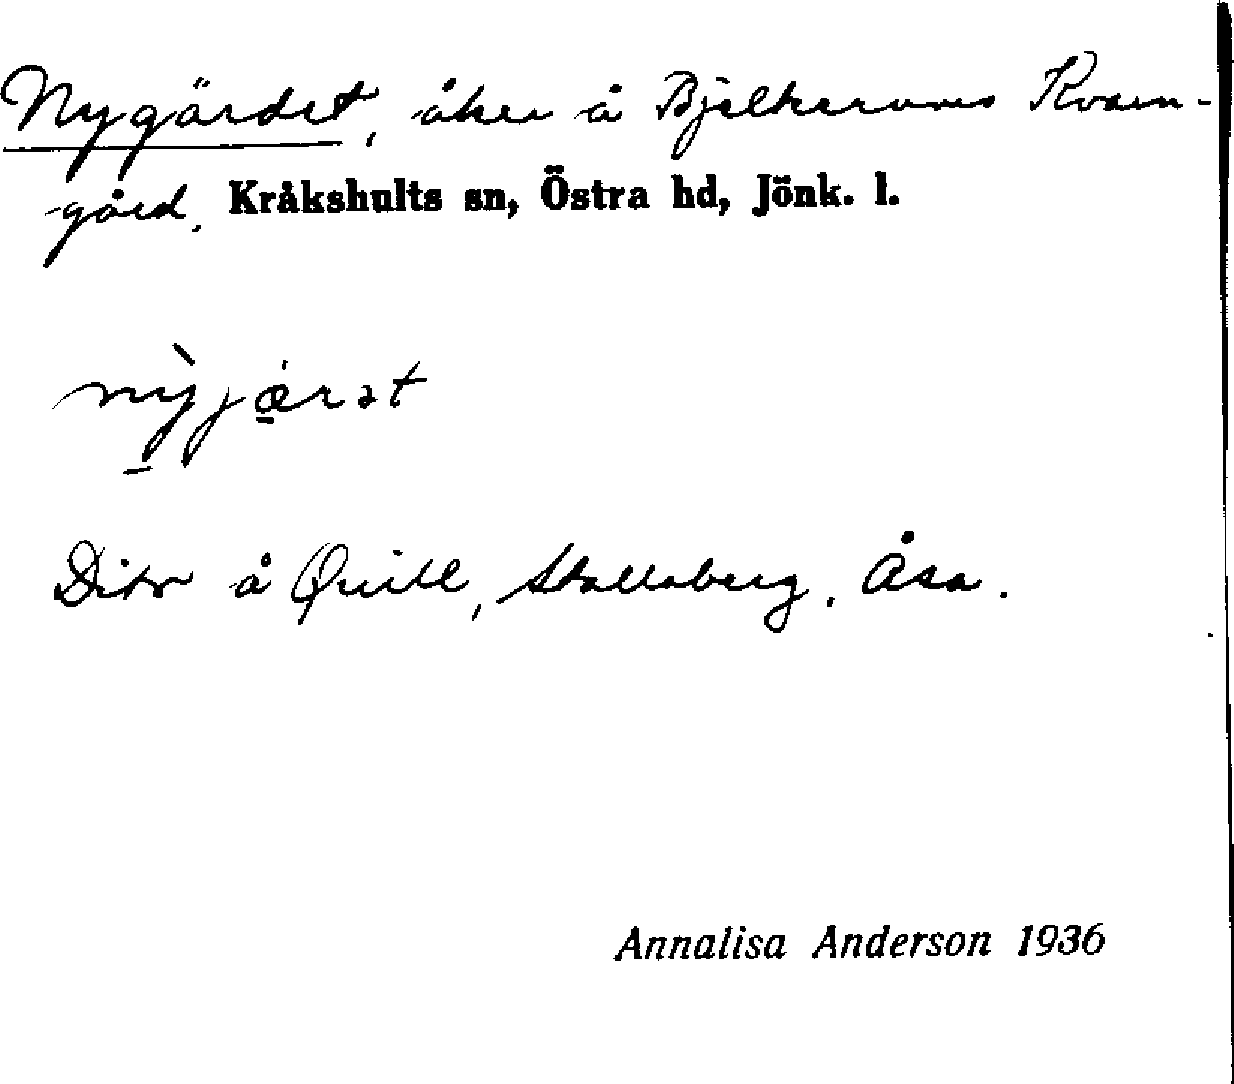 Nygärdet, åker å Bjelkerums Kvarn-
gård, Kråkshults sn, Östra hd, Jönk. l.
nỳjæ̠rət
Dito å Qvill, Skallaberg, Åsa.
Annalisa Anderson 1936